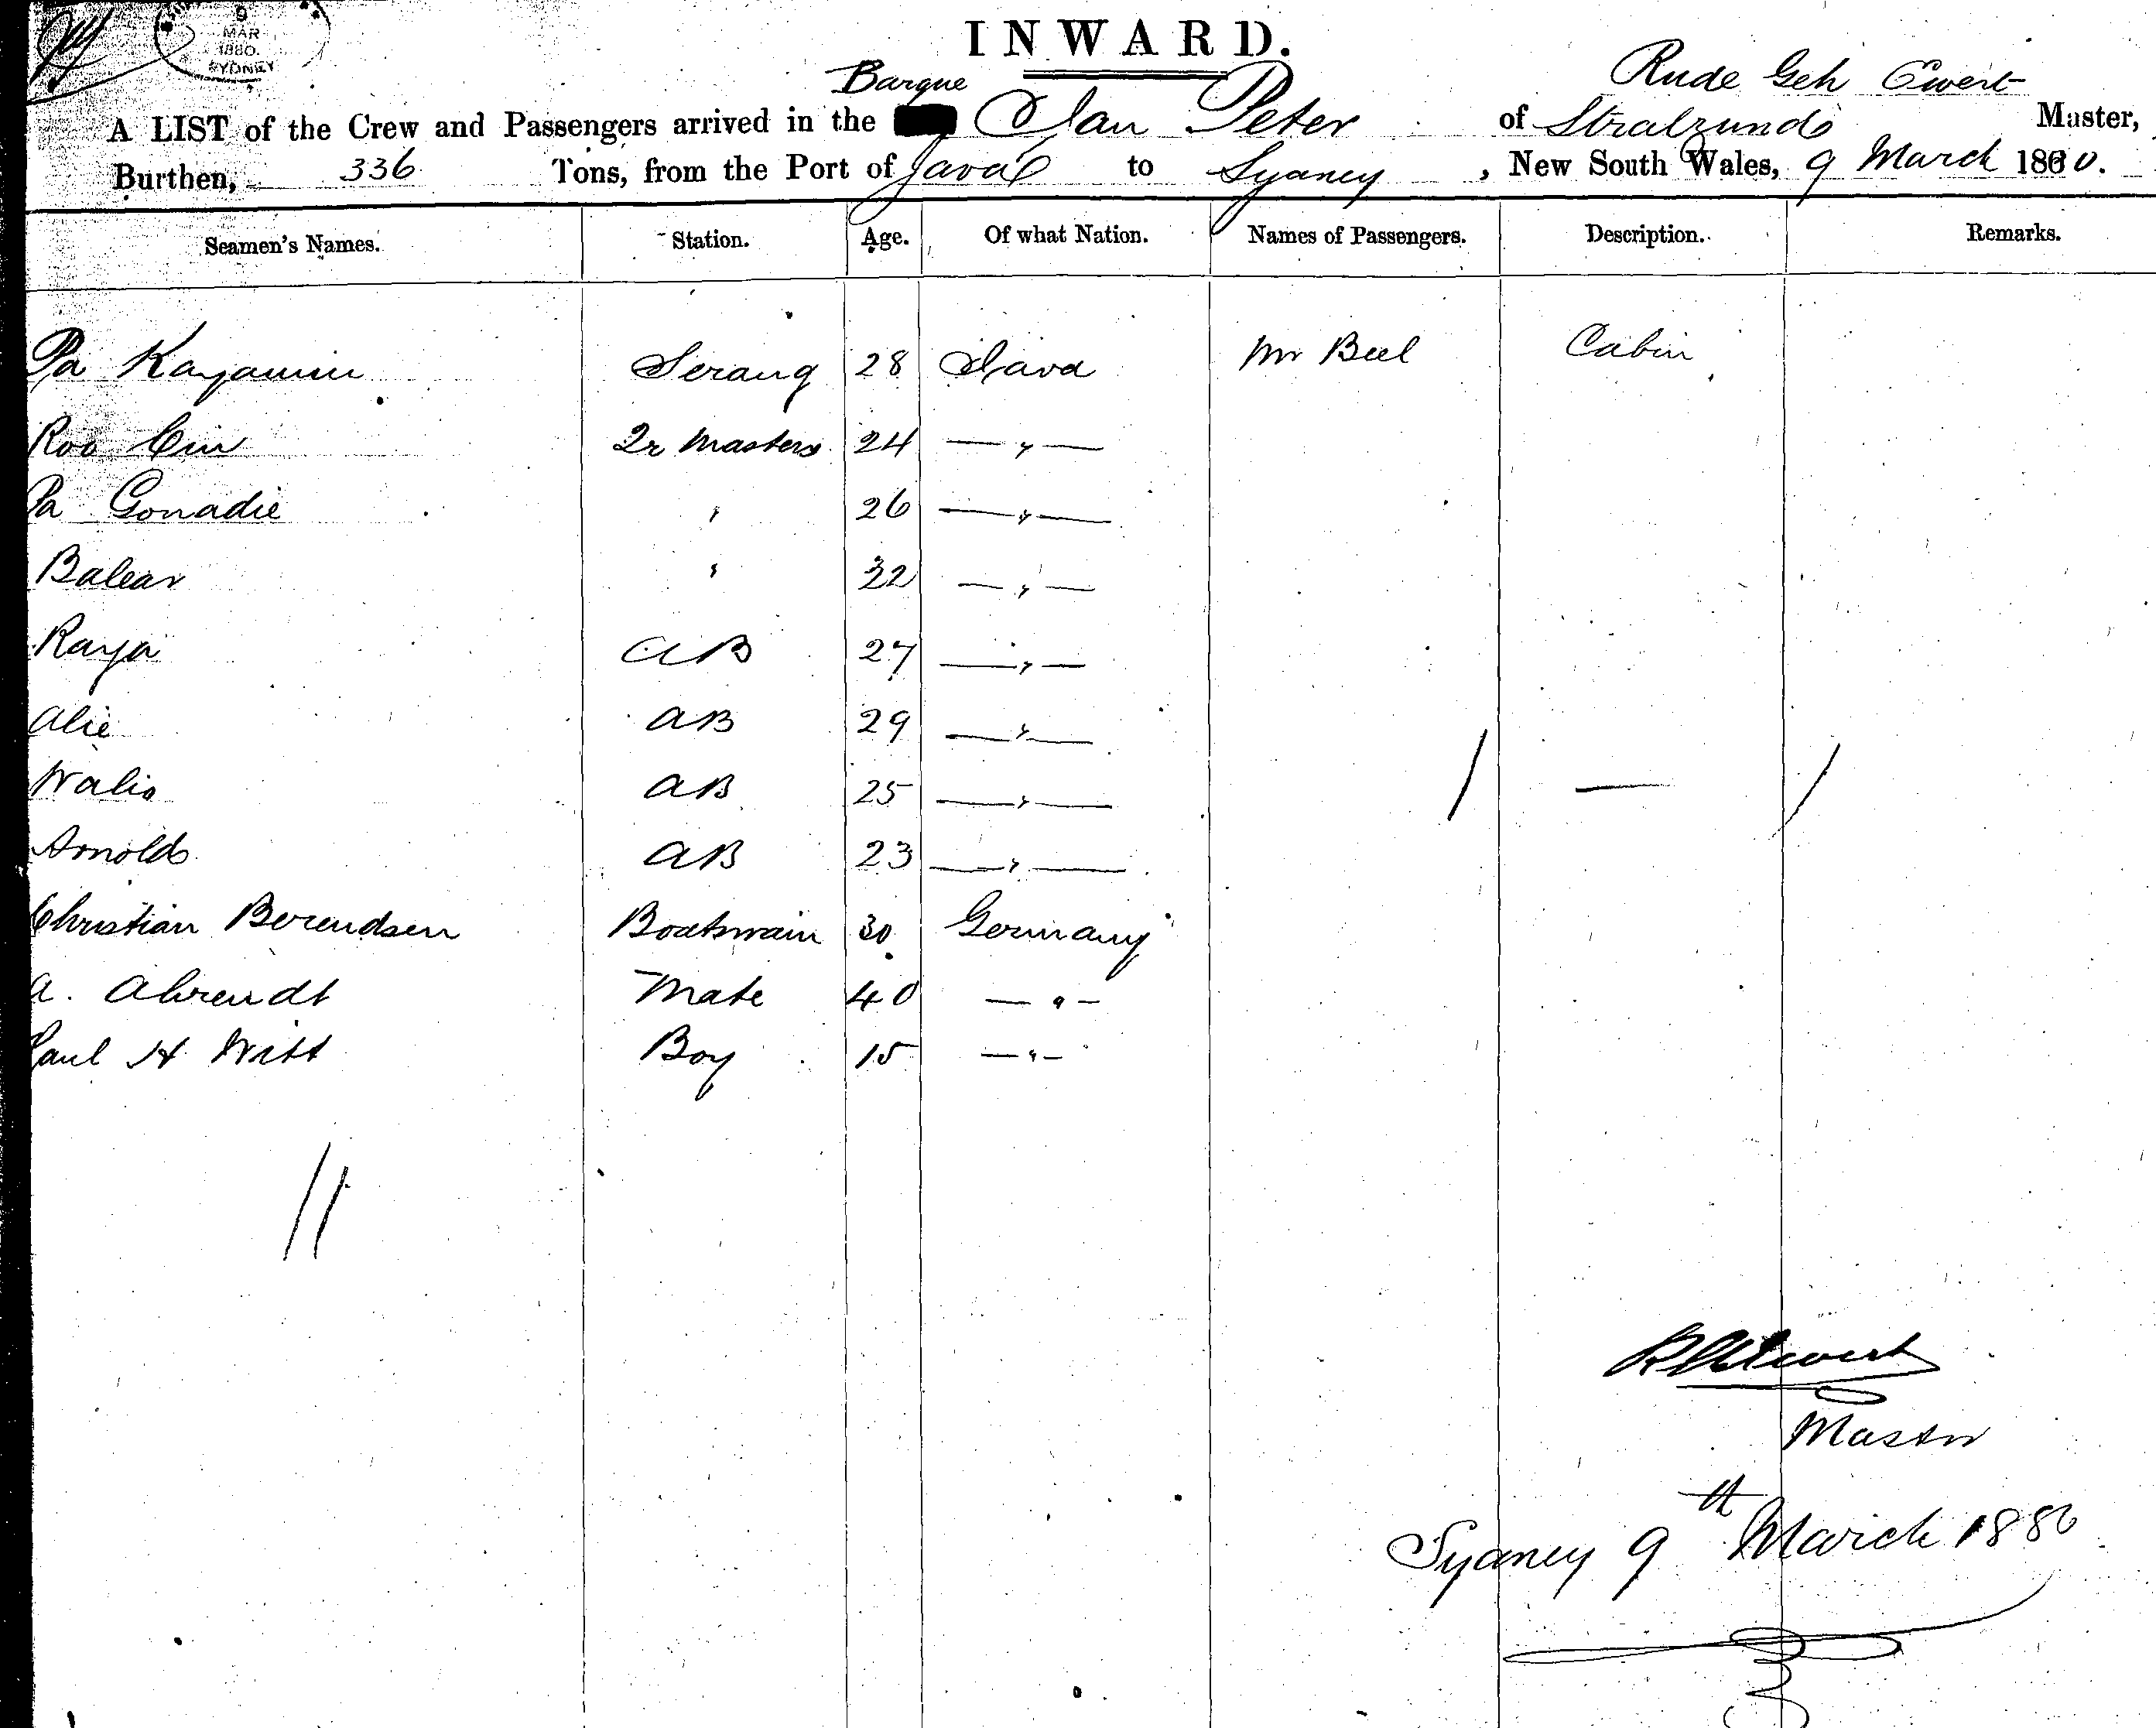 9
MAR
1880
SYDNEY
INWARD.
Barque
Rude Geh Ewert
A LIST of the Crew and Passengers arrived in the Jan Peter of Stralzund Master,
Burthen, 336 Tons, from the Port of Java to Sydney, New South Wales, 9 March 1880.
Seamen's Names. Station. Age. Of what Nation. Names of Passengers. Description. Remarks.
Pa Kayamin Serang 28 Java Mr Beel Cabin
Roo Cin Qr Masters 24 — " —
Pa Gonadie " 26 — " —
Balear " 32 — " —
Raya AB 27 — " —
Alie AB 29 — " —
Walio AB 25 — " — / — /
Arnold AB 23 — " —
Christian Berendsen Boatswain 30 Germany
A. Ahrendt Mate 40 — " —
Paul H Witt Boy 15 — " —
11
R G Ewert
Master
Sydney 9th March 1880